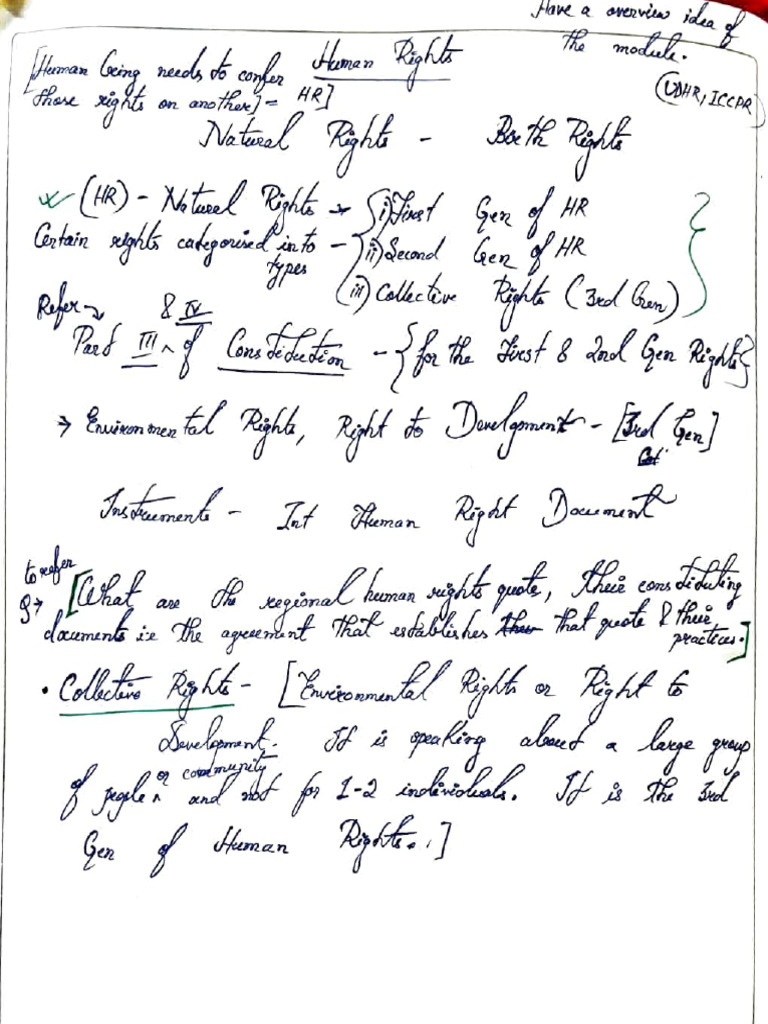 Have a overview idea of
the module.
(UDHR, ICCPR)
Human Rights
[Human being needs to confer
those rights on another] = HR]
Natural Rights - Birth Rights
(HR) - Natural Rights → {i) First Gen of HR
Certain rights categorised into - ii) Second Gen of HR
types
(iii) Collective Rights (3rd Gen)}
Refer →
& IV
Part III ^ of Constitution - {for the First & 2nd Gen Rights}
→ Environmental Rights, Right to Development - [3rd Gen]
Instruments - Int Human Right Document
to refer
Q → [What are the regional human rights quote, their constituting
documents i.e the agreement that establishes that quote & their
practices.]
• Collective Rights - [Environmental Rights or Right to
Development. It is speaking about a large group
or community
of people ^ and not for 1-2 individuals. It is the 3rd
Gen of Human Rights..]